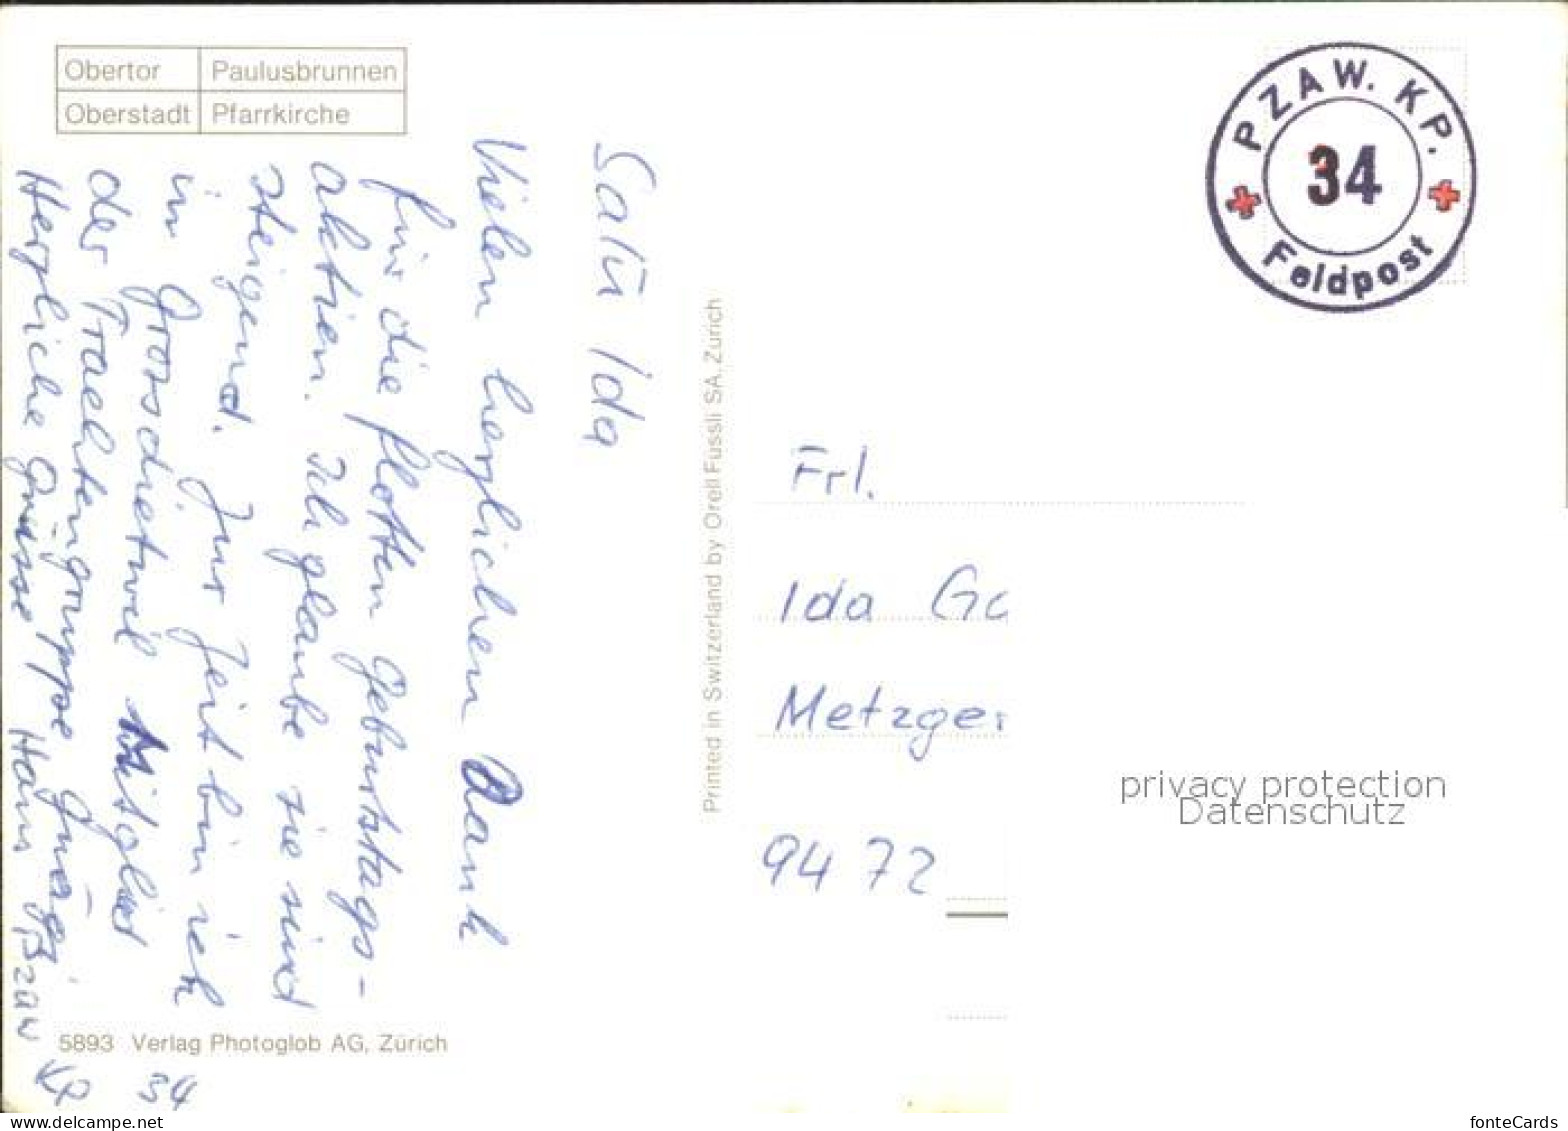 Obertor Paulusbrunnen
Oberstadt Pfarrkirche
Salü Ida
Vielen herzlichen Dank
für die flotten Geburtstags-
aktien. Ich glaube sie sind
steigend. Zur Zeit bin ich
in Grossdietwil Mitglied
der Trachtengruppe
Herzliche Grüsse Hans
Pzaw
Kp 34
5893 Verlag Photoglob AG, Zürich
Printed in Switzerland by Orell Füssli SA. Zürich
PZAW. KP.
34
Feldpost
Frl.
Ida Ga
Metzger
9472
privacy protection
Datenschutz
fonteCards